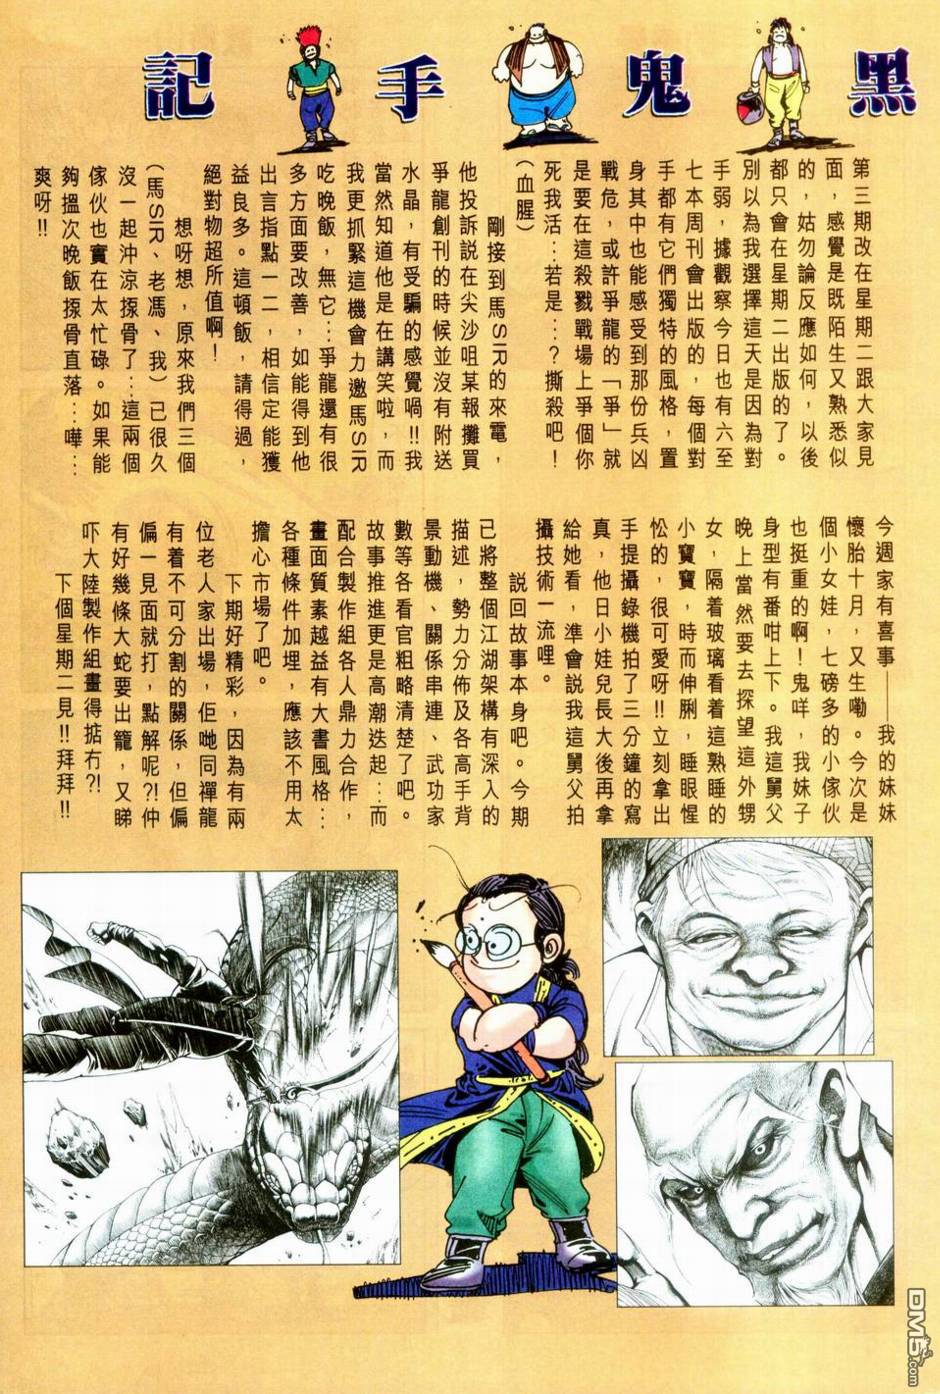 黑鬼手記
第三期改在星期二跟大家見
面，感覺是既陌生又熟悉似
的，姑勿論反應如何，以後
都只會在星期二出版的了。
別以為我選擇這天是因為對
手弱，據觀察今日也有六至
七本周刊會出版的，每個對
手都有它們獨特的風格，置
身其中也能感受到那份兵凶
戰危，或許爭龍的「爭」就
是要在這殺戮戰場上爭個你
死我活…若是…？撕殺吧！
（血腥）
剛接到馬SIR的來電，
他投訴説在尖沙咀某報攤買
爭龍創刊的時候並沒有附送
水晶，有受騙的感覺喎!!我
當然知道他是在講笑啦，而
我更抓緊這機會力邀馬SIR
吃晚飯，無它…爭龍還有很
多方面要改善，如能得到他
出言指點一二，相信定能獲
益良多。這頓飯，請得過，
絕對物超所值啊！
想呀想，原來我們三個
（馬SIR、老馮、我）已很久
沒一起沖涼揼骨了…這兩個
傢伙也實在太忙碌。如果能
夠搵次晚飯揼骨直落…嘩…
爽呀!!
今週家有喜事——我的妹妹
懷胎十月，又生嘞。今次是
個小女娃，七磅多的小傢伙
也挺重的啊！鬼咩，我妹子
身型有番咁上下。我這舅父
晚上當然要去探望這外甥
女，隔着玻璃看着這熟睡的
小寶寶，時而伸脷，睡眼惺
忪的，很可愛呀!!立刻拿出
手提攝錄機拍了三分鐘的寫
真，他日小娃兒長大後再拿
給她看，準會説我這舅父拍
攝技術一流哩。
説回故事本身吧。今期
已將整個江湖架構有深入的
描述，勢力分佈及各高手背
景動機、關係串連、武功家
數等各看官粗略清楚了吧。
故事推進更是高潮迭起…而
配合製作組各人鼎力合作，
畫面質素越益有大書風格…
各種條件加埋，應該不用太
擔心市場了吧。
下期好精彩，因為有兩
位老人家出場，佢哋同禪龍
有着不可分割的關係，但偏
偏一見面就打，點解呢?!仲
有好幾條大蛇要出籠，又睇
吓大陸製作組畫得掂冇?!
下個星期二見!!拜拜!!
DM5.com